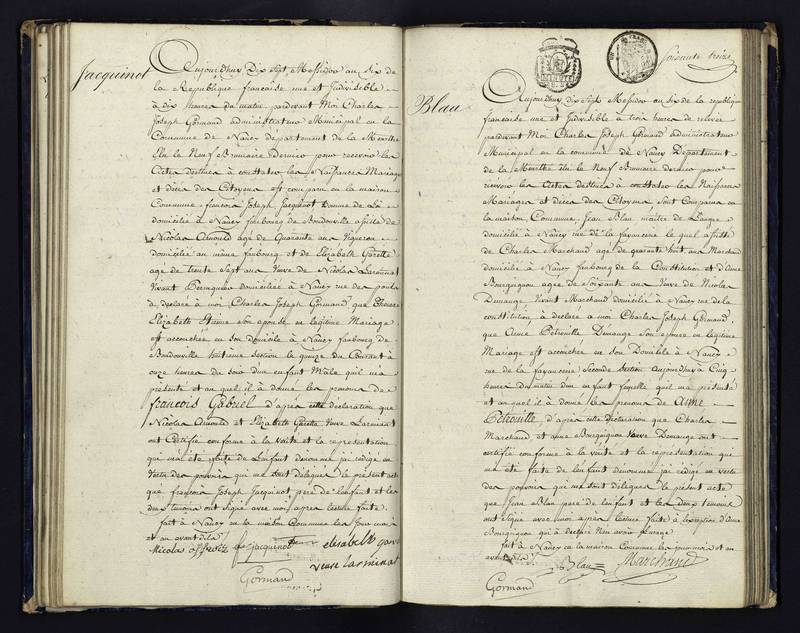 Jacquinot
Aujourd'huy Dix Sept Messidor an Six de
la République française une et Indivisible
à dix heures du matin pardevant Moi Charles
Joseph Gormand administrateur Municipal en la
Commune de Nancy département de la Meurthe
Elu le Neuf Brumaire dernier pour recevoir les
Actes destinés à constater les Naissances Mariages
et décès des Citoyens est comparu en la maison
Commune françois Joseph Jacquinot homme de Loi
domicilié à Nancy faubourg de Boudonville assisté de
Nicolas age de Quarante ans Vigneron
domicilié au même faubourg et de Elizabeth Garette
agée de trente Sept ans Veuve de Nicolas Larminat
Vivant Perruquier domiciliée à Nancy rue des ponts
a déclaré à moi Charles Joseph Gormand que Therese
Elizabeth Etienne Son epouse en légitime Mariage
est accouchée en Son domicile à Nancy faubourg de
Boudonville huitieme Section le quinze du Courant à
onze heures du soir d'un enfant Mâle qu'il m'a
présenté et au quel il a donné les prenoms de
françois Gabriel d'après cette déclaration que
Nicolas et Elizabeth Garette Veuve Larminat
ont Certifié conforme à la vérité et la représentation
qui m'a été faite de L'enfant dénommé j'ai rédigé en
Vertu des pouvoirs qui me sont délégués le présent acte
que françois Joseph Jacquinot pere de l'enfant et les
deux temoins ont signé avec moi après lecture faite
fait à Nancy en la maison Commune les jour mois
et an avant dits
Nicolas jacquinot elisabelt
veuve larminat
Gormand
Soixante treize
Blau
Aujourd'huy dix Sept Messidor an six de la republique
française une et Indivisible à trois heures de relevée
pardevant Moi Charles Joseph Gormand administrateur
Municipal en la commune de Nancy Département
de la Meurthe Elu le neuf Brumaire dernier pour
recevoir les Actes destinés à constater les Naissances
Mariages et décès des Citoyens Sont Comparus en
la maison Commune Jean Blau maitre de Langue
domicilié à Nancy rue de la fayancerie le quel assisté
de Charles Marchand agé de quarante huit ans Marchand
domicilié à Nancy faubourg de la Constitution et d'Anne
Bourguignon agée de Soixante ans Veuve de Nicolas
Demange Vivant Marchand domiciliée à Nancy rue de la
constitution, a declaré a moi Charles Joseph Gormand,
que Anne Pétronille Demange Son epouse en légitime
Mariage est accouchée en Son Domicile à Nancy
rue de la fayancerie Seconde Section Aujourd'huy à Cinq
heures du matin d'un enfant femelle qu'il m'a présenté
et au quel il a donné les prenoms de Aimé
Pétronille d'après cette Déclaration que Charles
Marchand et anne Bourguignon Veuve Demange ont
certifié conforme à la vérité et la représentation qui
m'a été faite de l'enfant dénommé j'ai rédigé en vertu
des pouvoirs qui me sont délégués le présent acte
que Jean Blau pere de l'enfant et les deux temoins
ont signé avec moi après lecture faite à l'exception d'anne
Bourguignon qui a déclaré n'en avoir l'usage
fait à Nancy en la maison Commune les jour mois et an
avant dits
Blau Marchand
Gormand